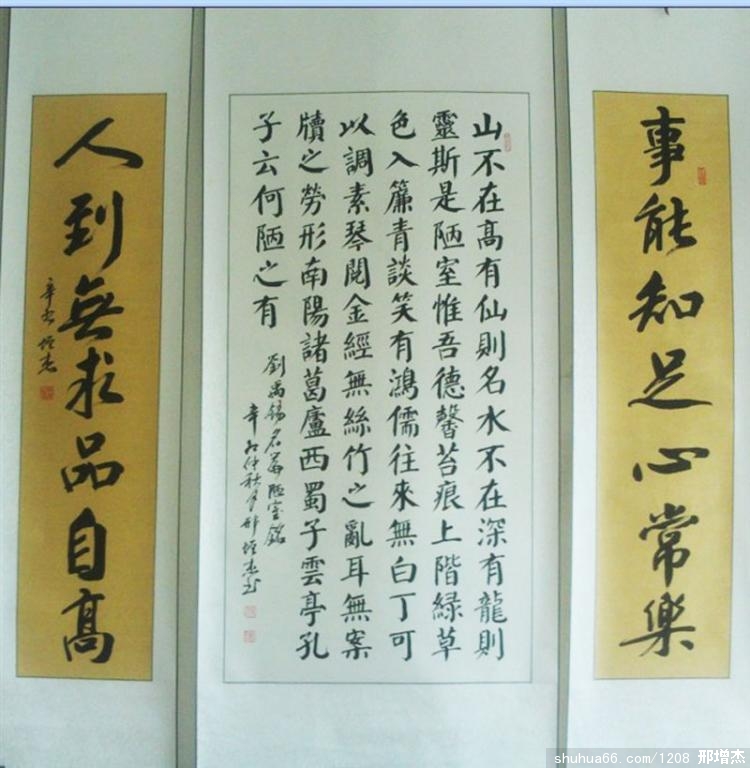 事能知足心常樂
山不在高有仙則名水不在深有龍則
靈斯是陋室惟吾德馨苔痕上階緑草
色入簾青談笑有鴻儒往來無白丁可
以調素琴閱金經無絲竹之亂耳無案
牘之勞形南陽諸葛廬西蜀子雲亭孔
子云何陋之有
劉禹錫名篇陋室銘
辛卯仲秋月邢增杰书
人到無求品自高
辛卯增杰
shuhua66.com/1208 邢增杰